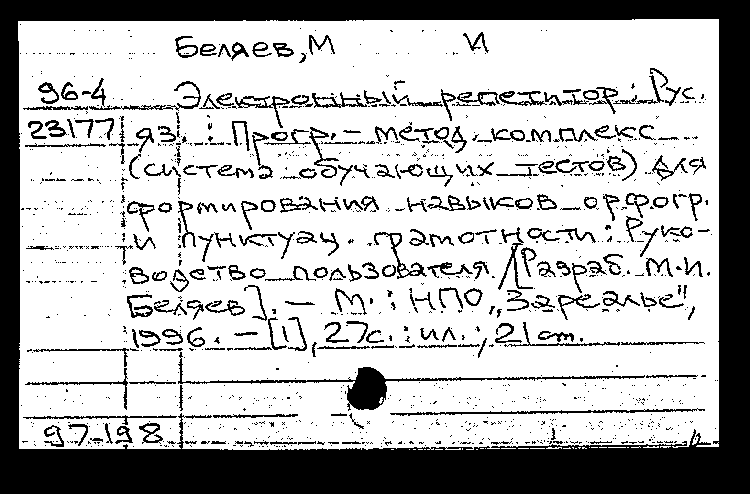 Беляев, М И
96-4 Электронный репетитор : Рус.
23177 яз. : Прогр.- метод. комплекс
(система обучающих тестов) для
формирования навыков орфогр.
и пунктуац. грамотности : Руко-
водство пользователя / [Разраб. М.И.
Беляев]. — М. : НПО „Зареалье",
1996. - [1], 27с. : ил. ; 21 см.
97-198